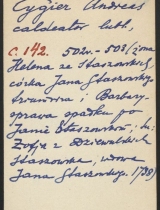 Cygier Andreas
caldeator lubl,
C. 142. 502v. - 503 (żona
Helena ze Staszowskich
córka Jana Staszowsky
i Barbary
sprawa spadku po
Janie Staszowskim; i
Zofja z
Staszowska, wdowa
Jana Staszowsky. 1738)